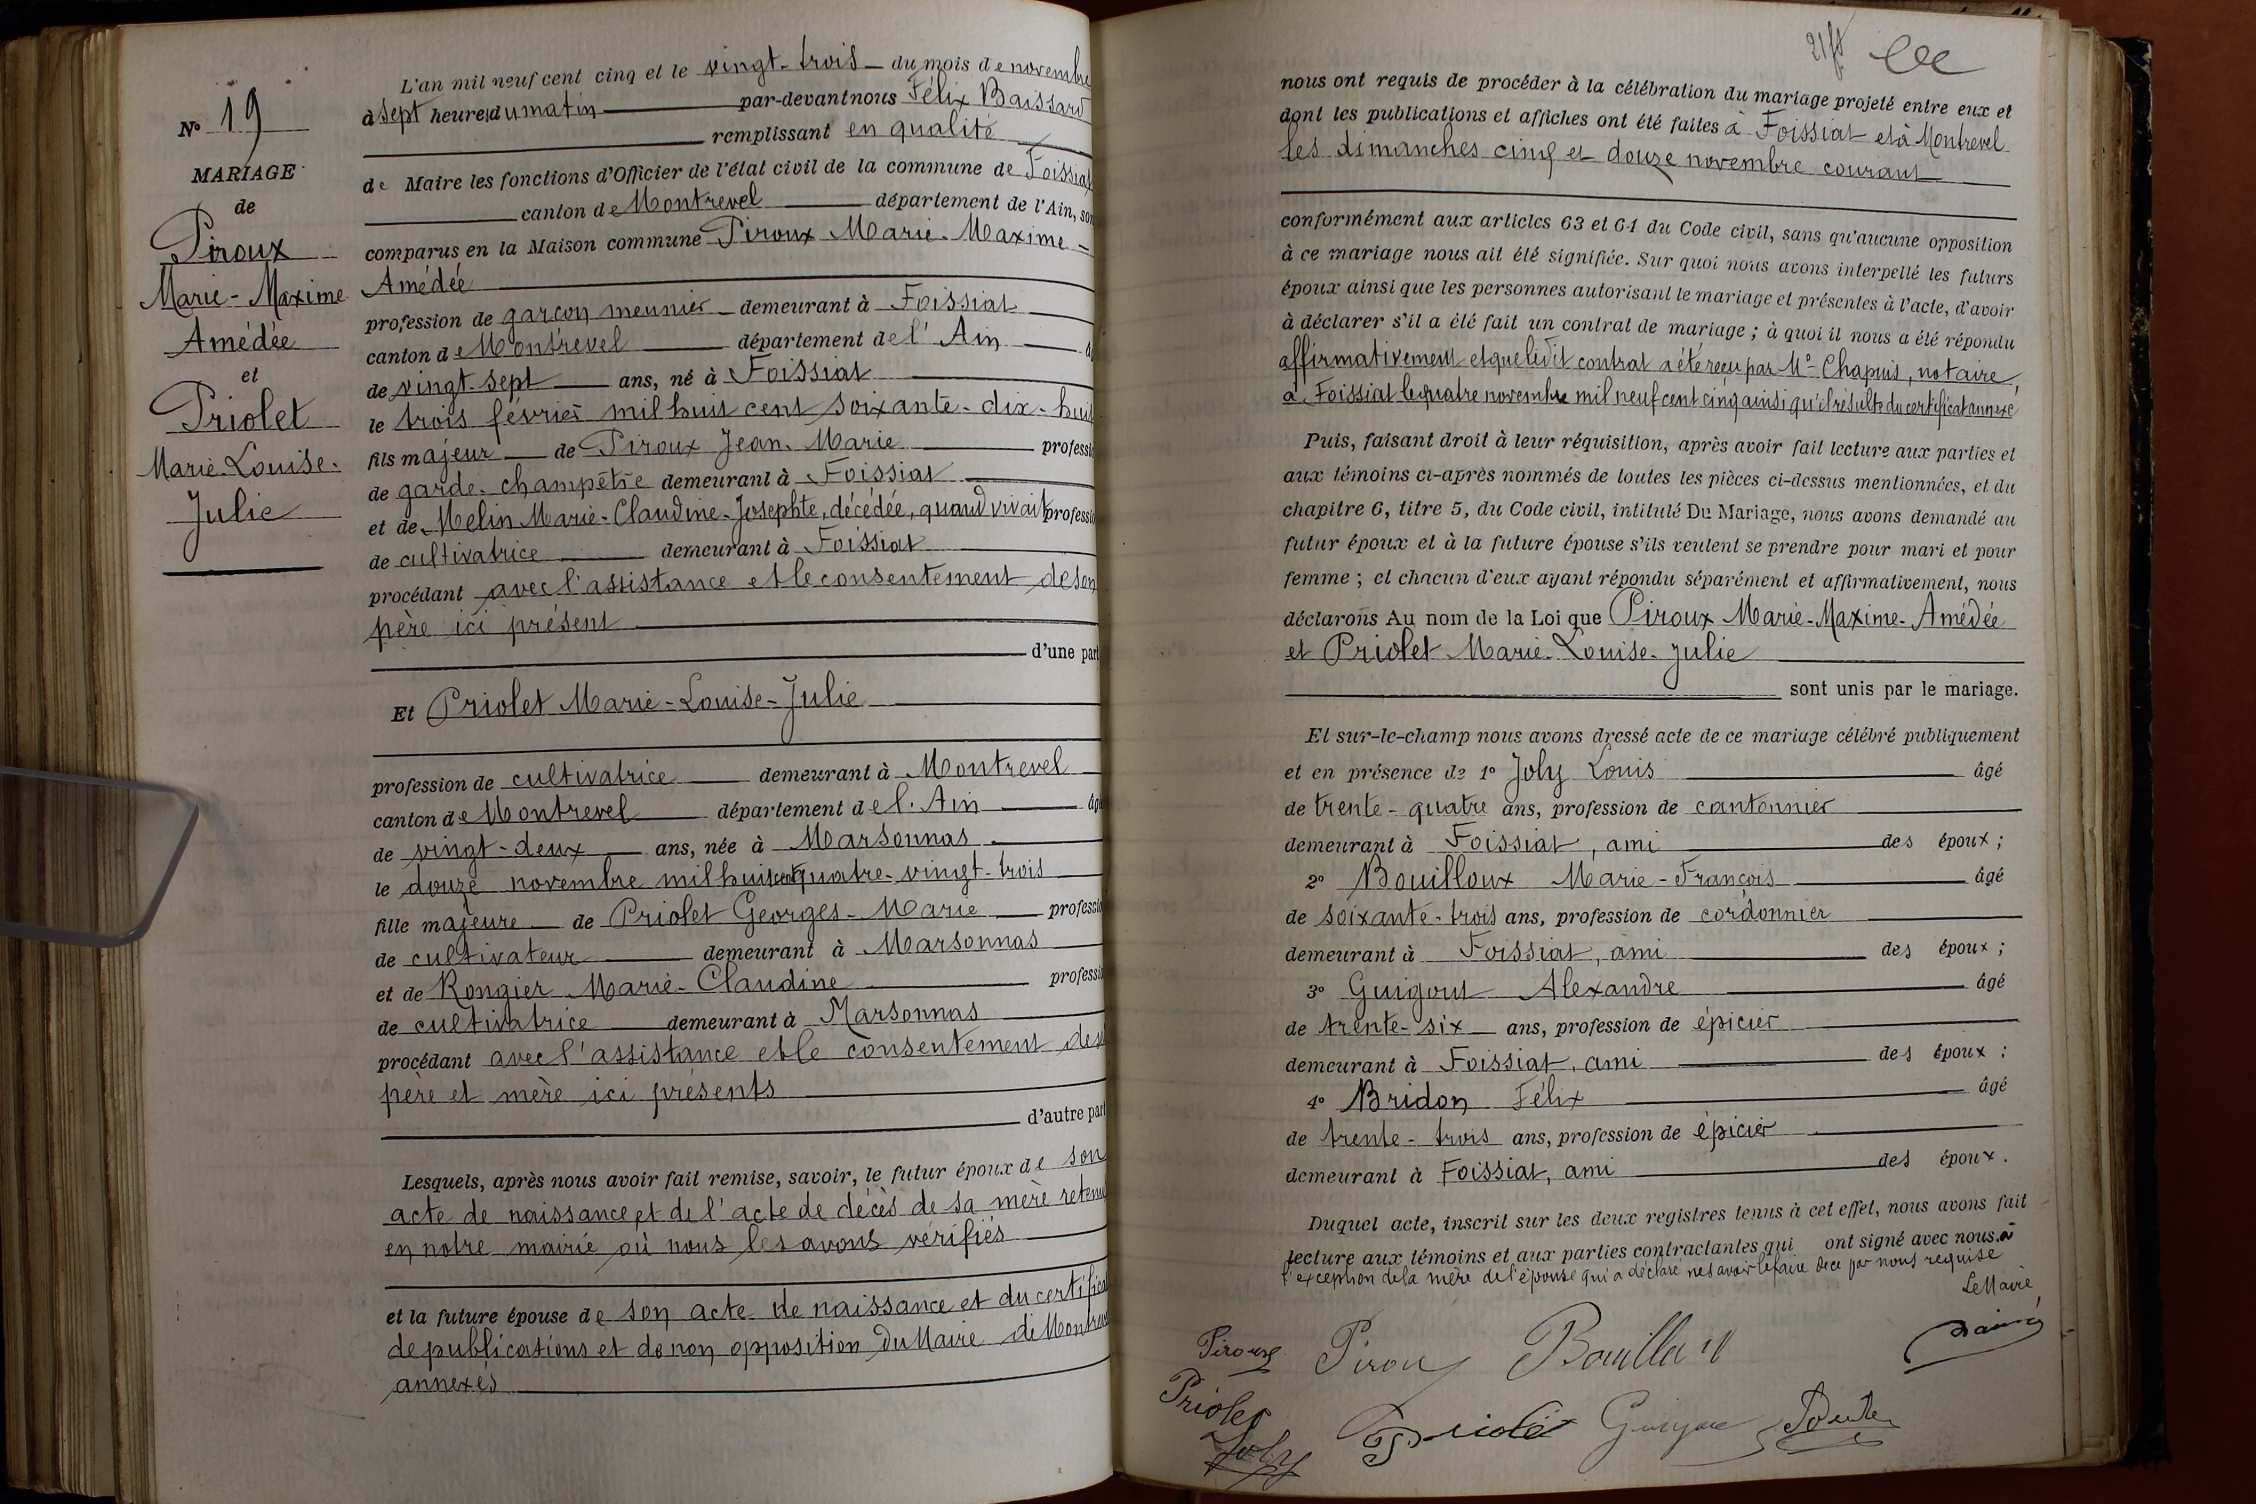 N° 19
MARIAGE
de
Piroux
Marie-Maxime
Amédée
et
Priolet
Marie-Louise-
Julie
L'an mil neuf cent cinq et le vingt-trois du mois de novembre
à sept heures du matin par-devant nous Félix Baissard
remplissant en qualité
de Maire les fonctions d'Officier de l'état civil de la commune de Foissiat
canton de Montrevel département de l'Ain, son
comparus en la Maison commune Piroux Marie-Maxime-
Amédée
profession de garçon meunier demeurant à Foissiat
canton de Montrevel département de l'Ain
de vingt-sept ans, né à Foissiat
le trois février mil huit cent soixante-dix-huit
fils majeur de Piroux Jean-Marie professio
de garde-champêtre demeurant à Foissiat
et de Melin Marie-Claudine-Josephte, décédée, quand vivait professio
de cultivatrice demeurant à Foissiat
procédant avec l'assistance et le consentement de son
père ici présent
d'une part
Et Priolet Marie-Louise-Julie
profession de cultivatrice demeurant à Montrevel
canton de Montrevel département de l'Ain âgé
de vingt-deux ans, née à Marsonnas
le douze novembre mil huit cent quatre-vingt-trois
fille majeure de Priolet Georges-Marie professio
de cultivateur demeurant à Marsonnas
et de Rongier Marie-Claudine professio
de cultivatrice demeurant à Marsonnas
procédant avec l'assistance et le consentement des
père et mère ici présents
d'autre part
Lesquels, après nous avoir fait remise, savoir, le futur époux de son
acte de naissance et de l'acte de décès de sa mère retenus
en notre mairie où nous les avons vérifiés
et la future épouse de son acte de naissance et du certificat
de publications et de non opposition du Maire de Montrevel
annexés
nous ont requis de procéder à la célébration du mariage projeté entre eux et
dont les publications et affiches ont été faites à Foissiat et à Montrevel
les dimanches cinq et douze novembre courant
conformément aux articles 63 et 64 du Code civil, sans qu'aucune opposition
à ce mariage nous ait été signifiée. Sur quoi nous avons interpellé les futurs
époux ainsi que les personnes autorisant le mariage et présentes à l'acte, d'avoir
à déclarer s'il a été fait un contrat de mariage ; à quoi il nous a été répondu
affirmativement et que ledit contrat a été reçu par Me Chapuis, notaire,
à Foissiat le quatre novembre mil neuf cent cinq ainsi qu'il résulte du certificat annexé
Puis, faisant droit à leur réquisition, après avoir fait lecture aux parties et
aux témoins ci-après nommés de toutes les pièces ci-dessus mentionnées, et du
chapitre 6, titre 5, du Code civil, intitulé Du Mariage, nous avons demandé au
futur époux et à la future épouse s'ils veulent se prendre pour mari et pour
femme ; et chacun d'eux ayant répondu séparément et affirmativement, nous
déclarons Au nom de la Loi que Piroux Marie-Maxime-Amédée
et Priolet Marie-Louise-Julie
sont unis par le mariage.
Et sur-le-champ nous avons dressé acte de ce mariage célébré publiquement
et en présence de 1° Joly Louis âgé
de trente-quatre ans, profession de cantonnier
demeurant à Foissiat, ami des époux ;
2° Bouilloux Marie-François âgé
de soixante-trois ans, profession de cordonnier
demeurant à Foissiat, ami des époux ;
3° Guigout Alexandre âgé
de trente-six ans, profession de épicier
demeurant à Foissiat, ami des époux ;
4° Bridon Félix âgé
de trente-trois ans, profession de épicier
demeurant à Foissiat, ami des époux.
Duquel acte, inscrit sur les deux registres tenus à cet effet, nous avons fait
lecture aux témoins et aux parties contractantes qui ont signé avec nous à
l'exception de la mère de l'épouse qui a déclaré ne savoir le faire de ce par nous requise
Le Maire
Piroux Piroux
Priolet
Joly Priolet